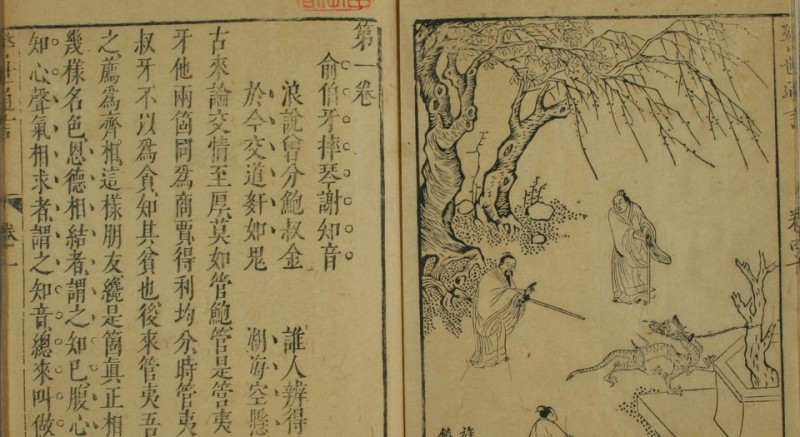 第一卷
俞伯牙摔琴謝知音
浪說曾分鮑叔金 誰人辨得
於今交道奸如鬼 湖海空懸
古來論交情至厚莫如管鮑管是管夷
牙他兩箇同爲商賈得利均分時管夷
叔牙不以爲貪知其貧也後來管夷吾
之薦爲齊相這樣朋友纔是箇眞正相
幾樣名色恩德相結者謂之知己腹心
知心聲氣相求者謂之知音總來叫做
世通言 卷一